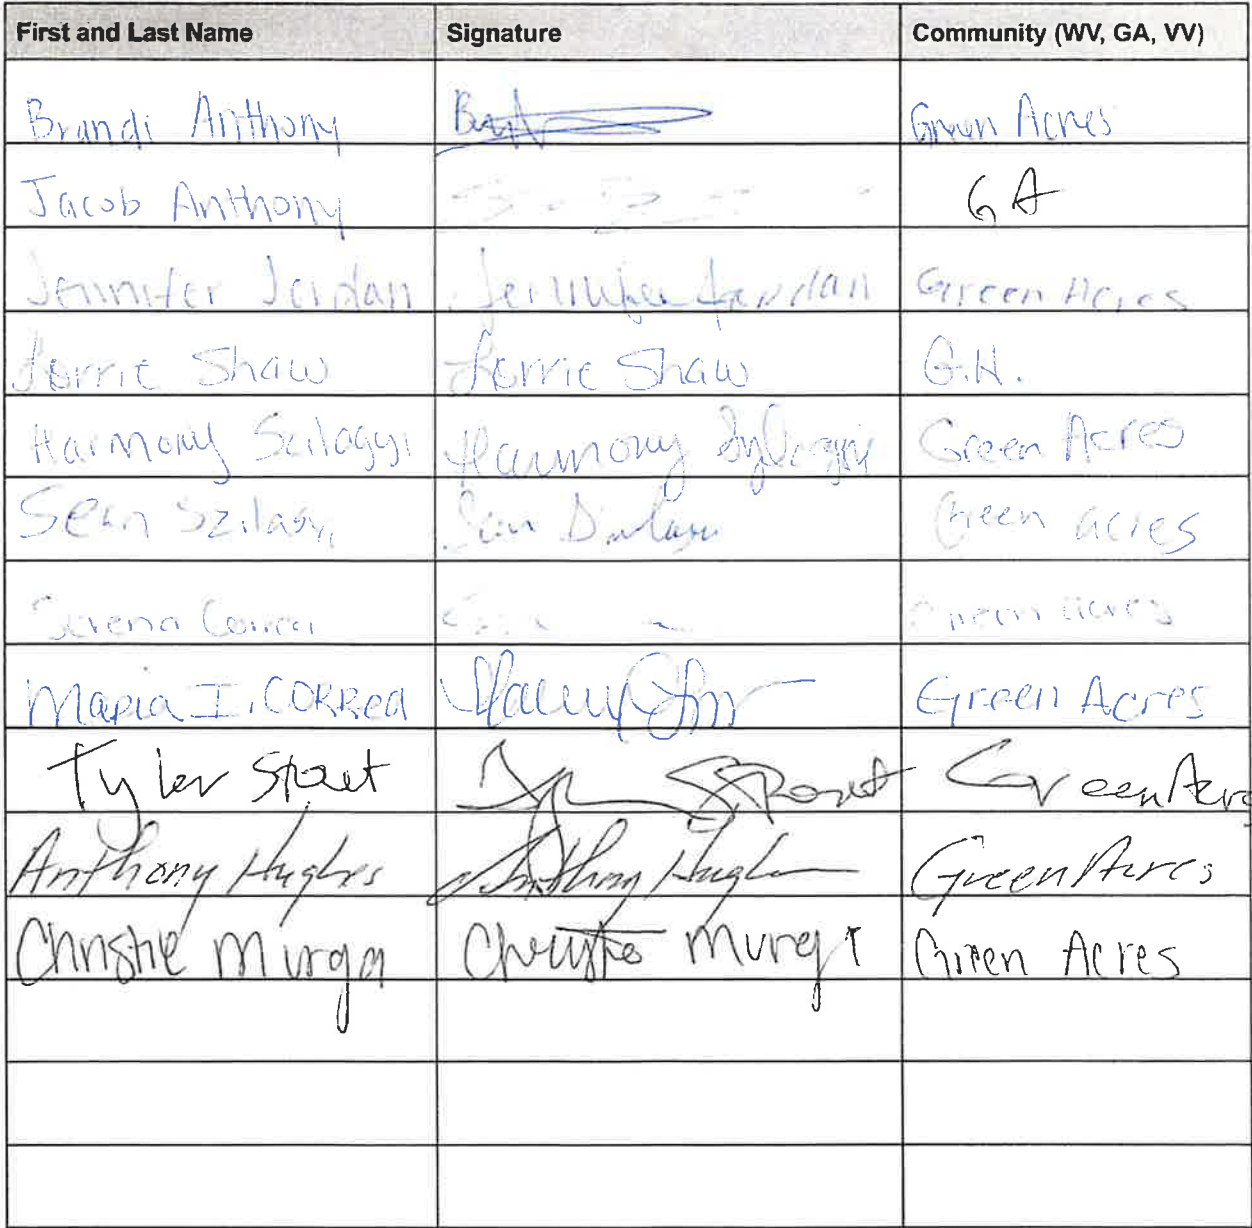 First and Last Name Signature Community (WV, GA, VV)
Brandi Anthony Green Acres
Jacob Anthony GA
Jennifer Jordan Jennifer Jordan Green Acres
Lorrie Shaw Lorrie Shaw G.A.
Harmony Szilagyi Harmony Szilagyi Green Acres
Sean Szilagyi Sean Szilagyi Green acres
Serena Correa Green acres
Maria I. CORREA Green Acres
Tyler Stout Tyler Stout Green Acre
Anthony Hughes Anthony Hughes Green Acres
Christie Murga Christie Murga Green Acres